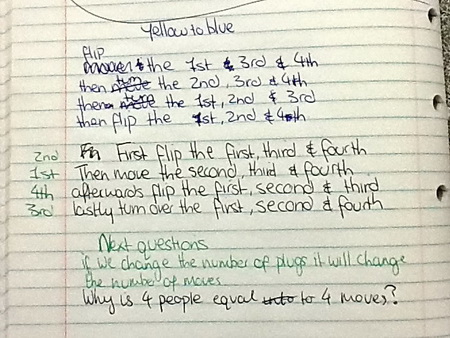 Yellow to blue
flip
the 1st & 3rd & 4th
then turn the 2nd, 3rd & 4th
then turn the 1st, 2nd & 3rd
then flip the 1st, 2nd & 4th
2nd First flip the first, third & fourth
1st Then move the second, third & fourth
4th afterwards flip the first, second & third
3rd lastly turn over the first, second & fourth
Next questions
if we change the number of plugs it will change
the number of moves
Why is 4 people equal to 4 moves?